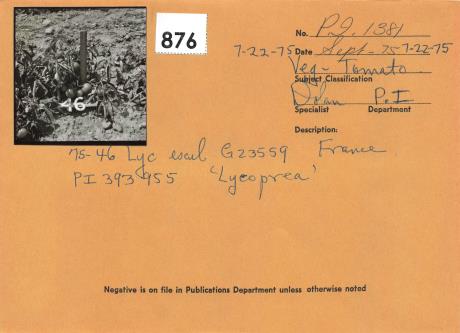 876
46
No. P.I. 1381
7-22-75 Date Sept-75 7-22-75
Veg- Tomato.
Subject Classification
Dolan P.I
Specialist Department
Description:
75-46 Lyc escul G23559 France.
PI 393955 'Lycoprea'
Negative is on file in Publications Department unless otherwise noted